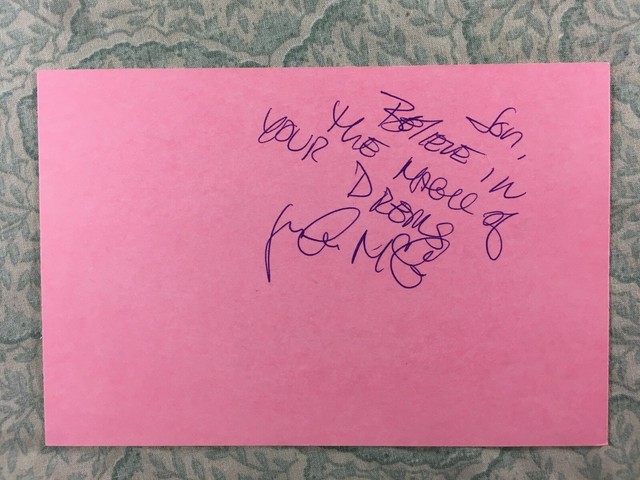 Son,
BELIEVE IN
THE MAGIC of
YOUR DREAMS